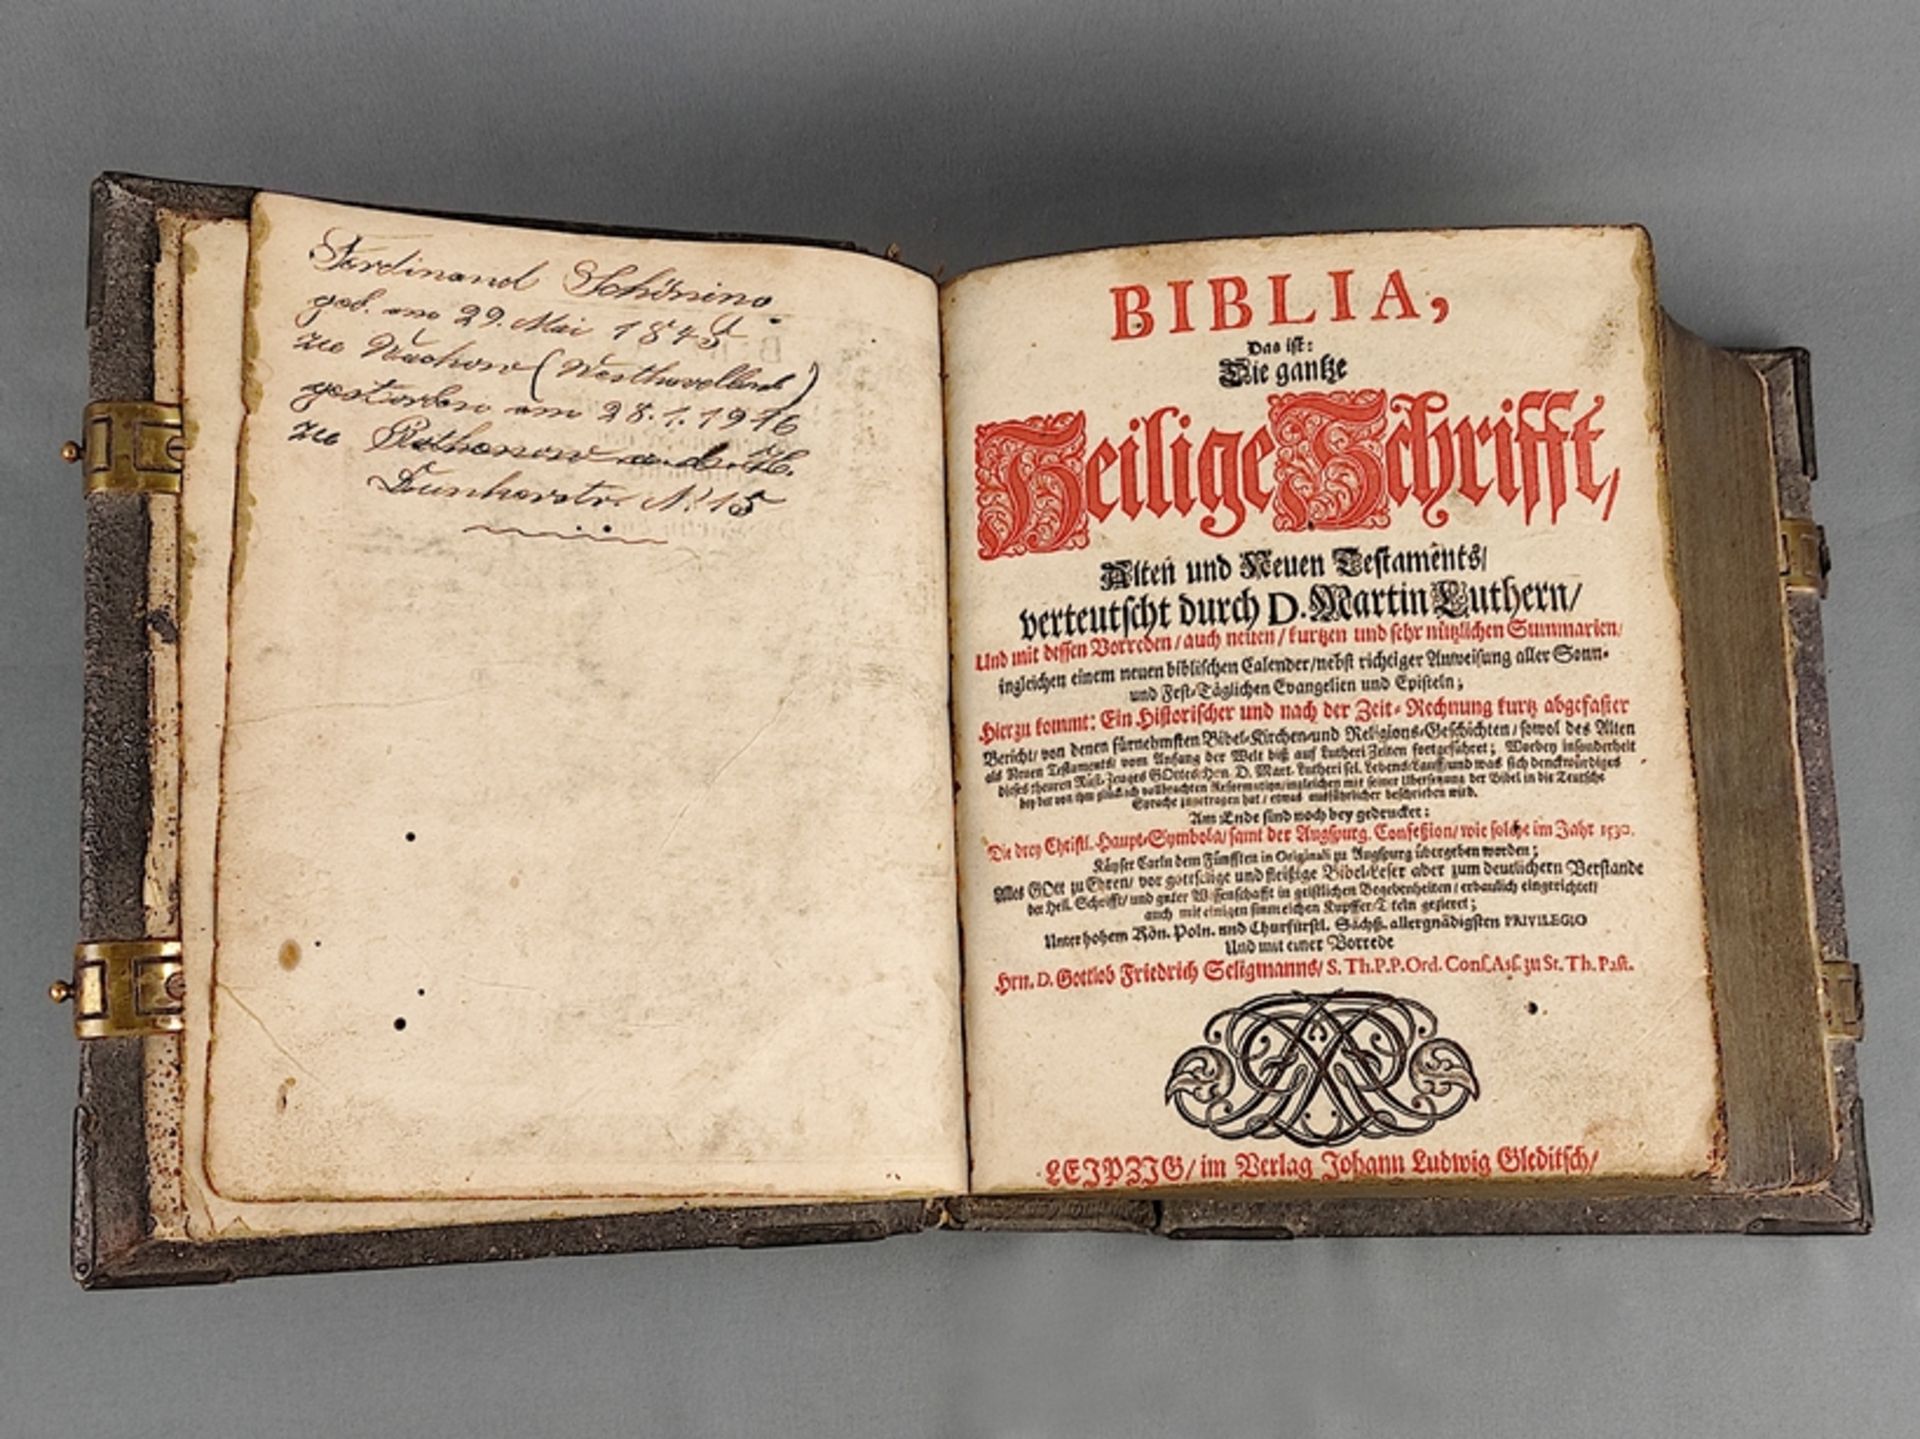 Ferdinand Schöning
geb. am 29. Mai 1845
zu Wachow (Westhavelland)
gestorben am 28.1.1916
zu Rathenow a. d. H.
Dunkerstr. N. 15
BIBLIA,
Das ist:
Die gantze
Heilige Schrifft,
Alten und Neuen Testaments/
verteutscht durch D. Martin Luthern/
Und mit dessen Vorreden/ auch neuen/ kurtzen und sehr nützlichen Summarien/
ingleichen einem neuen biblischen Calender/ nebst richtiger Anweisung aller Sonn-
und Fest-Täglichen Evangelien und Episteln;
Hierzu kommt: Ein Historischer und nach der Zeit-Rechnung kurtz abgefaster
Bericht/ von denen fürnehmsten Bibel-Kirchen-und Religions-Geschichten/ sowol des Alten
als Neuen Testaments/ vom Anfang der Welt biß auf Lutheri Zeiten fortgeführet; Worbey insonderheit
dieses theuren Rüst-Zeuges GOttes/ Hrn. D. Mart. Lutheri sel. Lebens-Lauff/ und was sich denckwürdiges
bey der von ihm glücklich vollbrachten Reformation/ ingleichen mit seiner Ubersetzung der Bibel in die Teutsche
Sprache zugetragen hat/ etwas ausführlicher beschrieben wird.
Am Ende sind noch bey gedrucket:
Die drey Christl. Haupt-Symbola/ samt der Augspurg. Confeßion/ wie solche im Jahr 1530.
Käyser Carln dem Fünfften in Originali zu Augspurg übergeben worden;
Alles GOtt zu Ehren/ vor gottselige und fleißige Bibel-Leser aber zum deutlichern Verstande
der Heil. Schrifft/ und guter Wissenschafft in geistlichen Begebenheiten/ erbaulich eingerichtet/
auch mit einigen sinnreichen Kupffer-Titeln gezieret;
Unter hohem Kön. Poln. und Churfürstl. Sächß. allergnädigsten PRIVILEGIO
Und mit einer Vorrede
Hrn. D. Gottlob Friedrich Seligmanns/ S. Th. P. P. Ord. Cons. Ass. zu St. Th. Past.
LEIPZIG/ im Verlag Johann Ludwig Gleditsch/